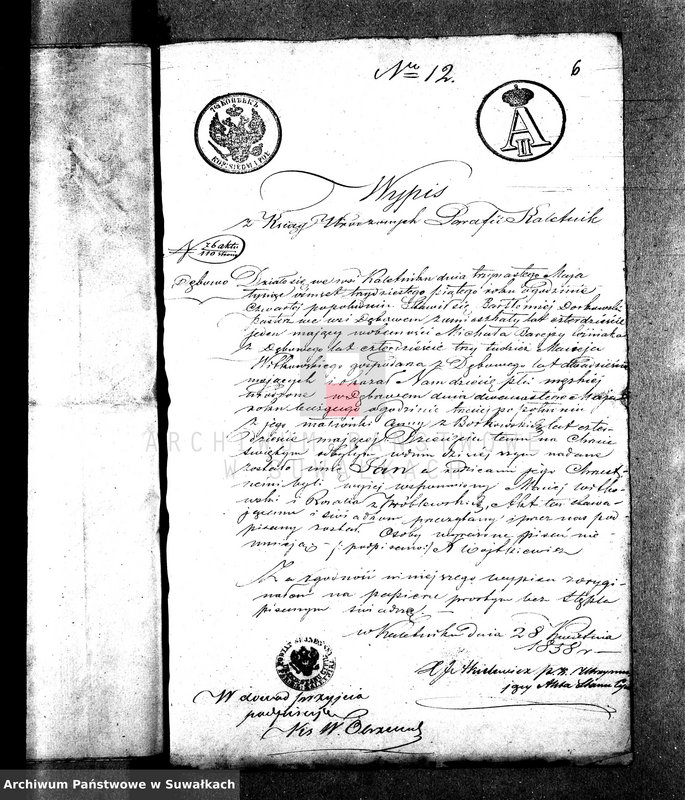 Nro 12.
6
7½ КОПѢЕКЪ
A II
Wypis
z Księgi Urodzonych Parafii Kaletnik
N 26 aktu
110 strony
Dębowo Działo się we wsi Kaletniku dnia trzynastego Maja
tysiąc ośmset trzydziestego piątego roku o godzinie
czwartej popołudniu. Stawił się Bartłomiej
we wsi Dębowem zamieszkały lat czterdzieści
jeden mający w obecności Michała
z Dębowego lat czterdzieści trzy tudzież Macieja
Witkowskiego gospodarza z Dębowego lat
mających i okazał Nam dziecię płci męskiej
urodzone w Dębowem dnia dwunastego Maja
roku bieżącego o godzinie trzeciej po północy
z jego małżonki Anny z Borkowskich lat czter-
dzieści mającej Dziecięciu temu na Chrzcie
świętym odbytym w dniu dzisiejszym nadane
zostało imię Jan a rodzicami jego Chrzest-
nemi byli wyżej wspomniony Maciej Witko-
wski i Rozalia z Wróblewskich, Akt ten stawa-
jącemu i świadkom przeczytany i przez nas pod-
pisany został. Osoby wyrażone pisać nie
umieją – /podpisano:/ A Wojtkiewicz
Za zgodność niniejszego wypisu z orygi-
nałem na papierze prostym bez stępla
pisanym świadczę –
w Kaletniku dnia 28 Kwietnia
1858 r –
utrzymu-
jący Akta Stanu Cyw
W dowód przyjęcia
podpisuję
Ks W.
ARCHIWUM PAŃSTWOWE
W SUWAŁKACH
Archiwum Państwowe w Suwałkach